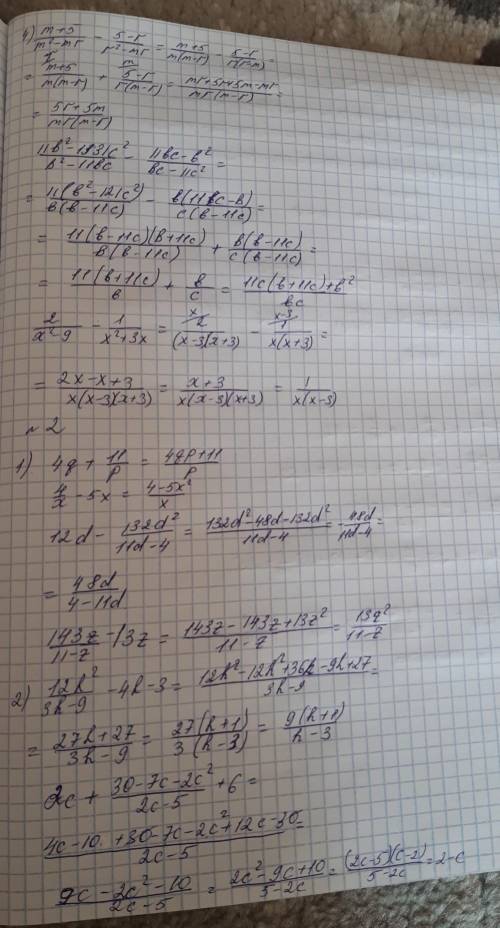 4) (m+5)/(m²-mr) - (5-r)/(r²-mr) = (m+5)/(m(m-r)) - (5-r)/(r(r-m)) =
= (m+5)/(m(m-r)) + (5-r)/(r(m-r)) = (mr+5r+5m-mr)/(mr(m-r)) =
= (5r+5m)/(mr(m-r))
(11b²-1331c²)/(b²-11bc) - (11bc-b²)/(bc-11c²) =
= 11(b²-121c²)/(b(b-11c)) - b(11bc-b)/(c(b-11c)) =
= 11(b-11c)(b+11c)/(b(b-11c)) + b(b-11c)/(c(b-11c)) =
= 11(b+11c)/b + b/c = (11c(b+11c)+b²)/(bc)
2/(x²-9) - 1/(x²+3x) = x/2/((x-3)(x+3)) - x-3/1/(x(x+3)) =
= (2x-x+3)/(x(x-3)(x+3)) = (x+3)/(x(x-3)(x+3)) = 1/(x(x-3))
№2
1) 4q + 11/p = (4qp+11)/p
4/x - 5x = (4-5x²)/x
12d - 132d²/(11d-4) = (132d²-48d-132d²)/(11d-4) = -48d/(11d-4) =
= 48d/(4-11d)
143z/(11-z) - 13z = (143z-143z+13z²)/(11-z) = 13z²/(11-z)
2) 12h²/(3h-9) - 4h-3 = (12h²-12h²+36h-9h+27)/(3h-9) =
= (27h+27)/(3h-9) = 27(h+1)/(3(h-3)) = 9(h+1)/(h-3)
2c + (30-7c-2c²)/(2c-5) + 6 =
(4c-10+30-7c-2c²+12c-30)/(2c-5) =
(9c-2c²-10)/(2c-5) = (2c²-9c+10)/(5-2c) = (2c-5)(c-2)/(5-2c) = 2-c